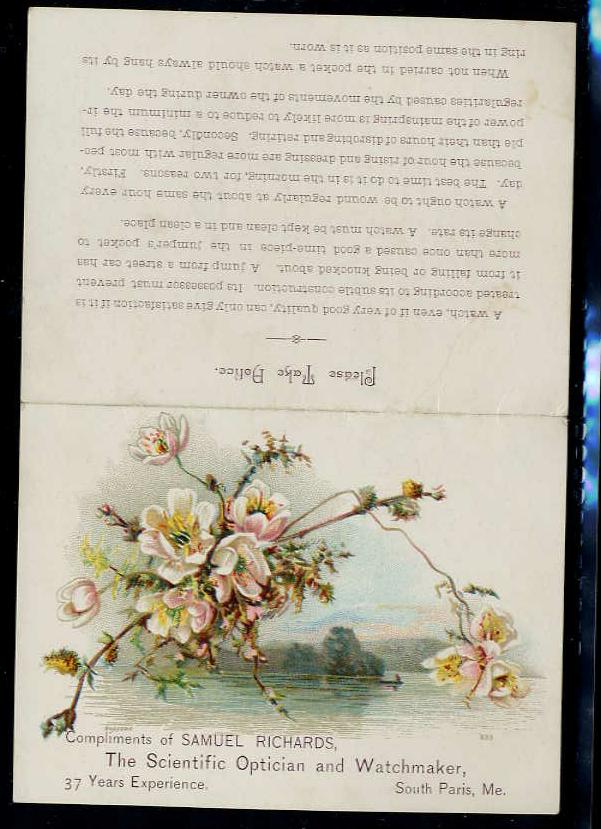 Please Take Notice.
A watch, even if of very good quality, can only give satisfaction if it is
treated according to its subtle construction. Its possessor must prevent
it from falling or being knocked about. A jump from a street car has
more than once caused a good time-piece in the jumper's pocket to
change its rate. A watch must be kept clean and in a clean place.
A watch ought to be wound regularly at about the same hour every
day. The best time to do it is in the morning, for two reasons. Firstly,
because the hour of rising and dressing are more regular with most peo-
ple than their hours of disrobing and retiring. Secondly, because the full
power of the mainspring is more likely to reduce to a minimum the ir-
regularities caused by the movements of the owner during the day.
When not carried in the pocket a watch should always hang by its
ring in the same position as it is worn.
Compliments of SAMUEL RICHARDS,
The Scientific Optician and Watchmaker,
37 Years Experience.
South Paris, Me.